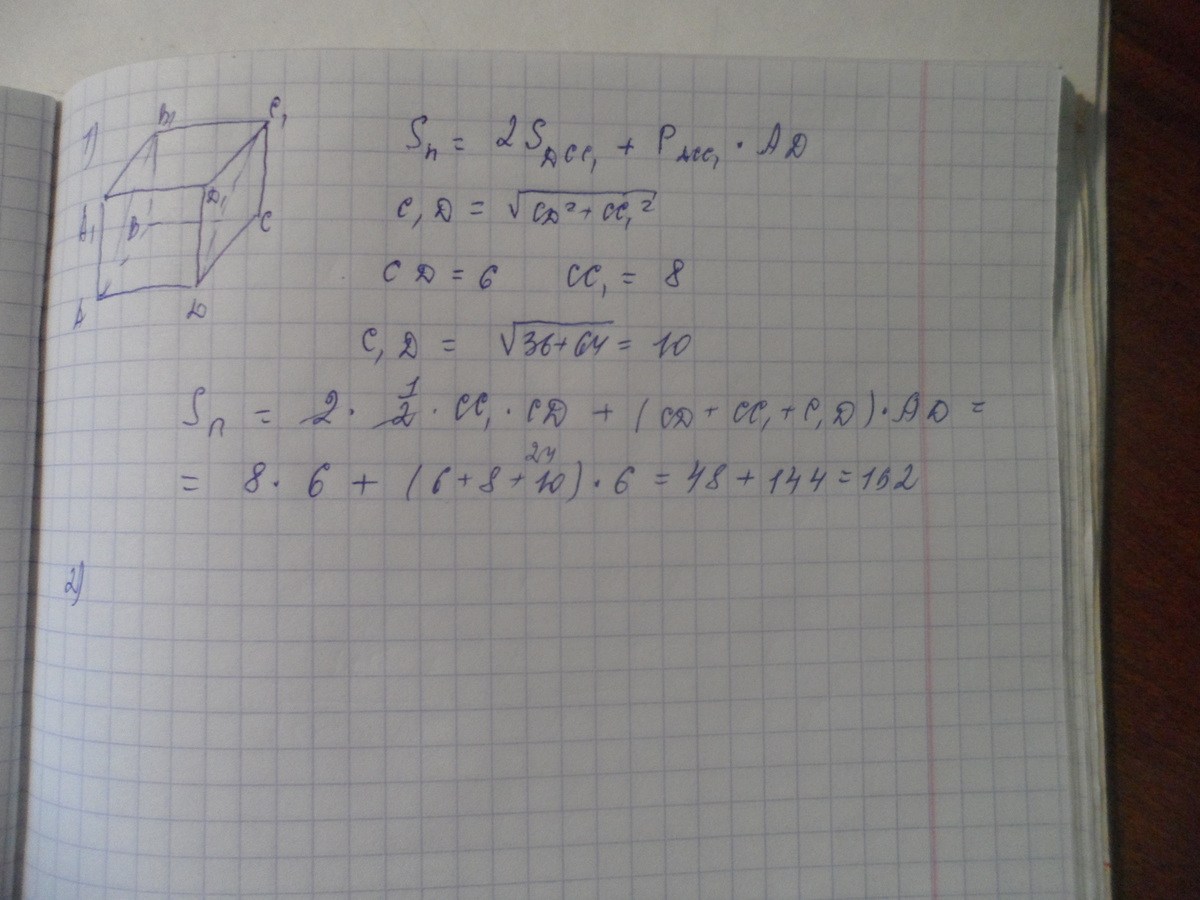 1)
B₁ C₁
A₁ B D₁ C
A D
Sп = 2S_DCC₁ + P_DCC₁ · AD
C₁D = √(CD² + CC₁²)
CD = 6 CC₁ = 8
C₁D = √(36+64) = 10
Sп = 2 · 1/2 · CC₁ · CD + (CD + CC₁ + C₁D) · AD =
24
= 8 · 6 + (6 + 8 + 10) · 6 = 48 + 144 = 192
2)